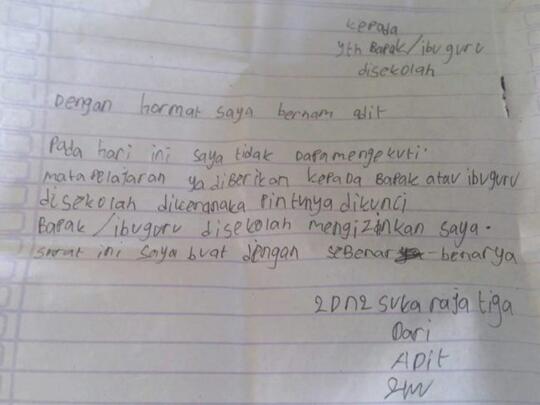 kepada
yth Bapak/ibu guru
disekolah
Dengan hormat saya bernam adit
Pada hari ini saya tidak Dapa mengekuti.
mata Pelajaran ya diBerikan kepada Bapak atau ibuguru
disekolah dikeranaka Pintunya dikunci
Bapak/ibuguru disekolah mengizinkan saya.
surat ini saya buat dengan seBenar-benarya
2Dn2 suka raja tiga
Dari
ADit